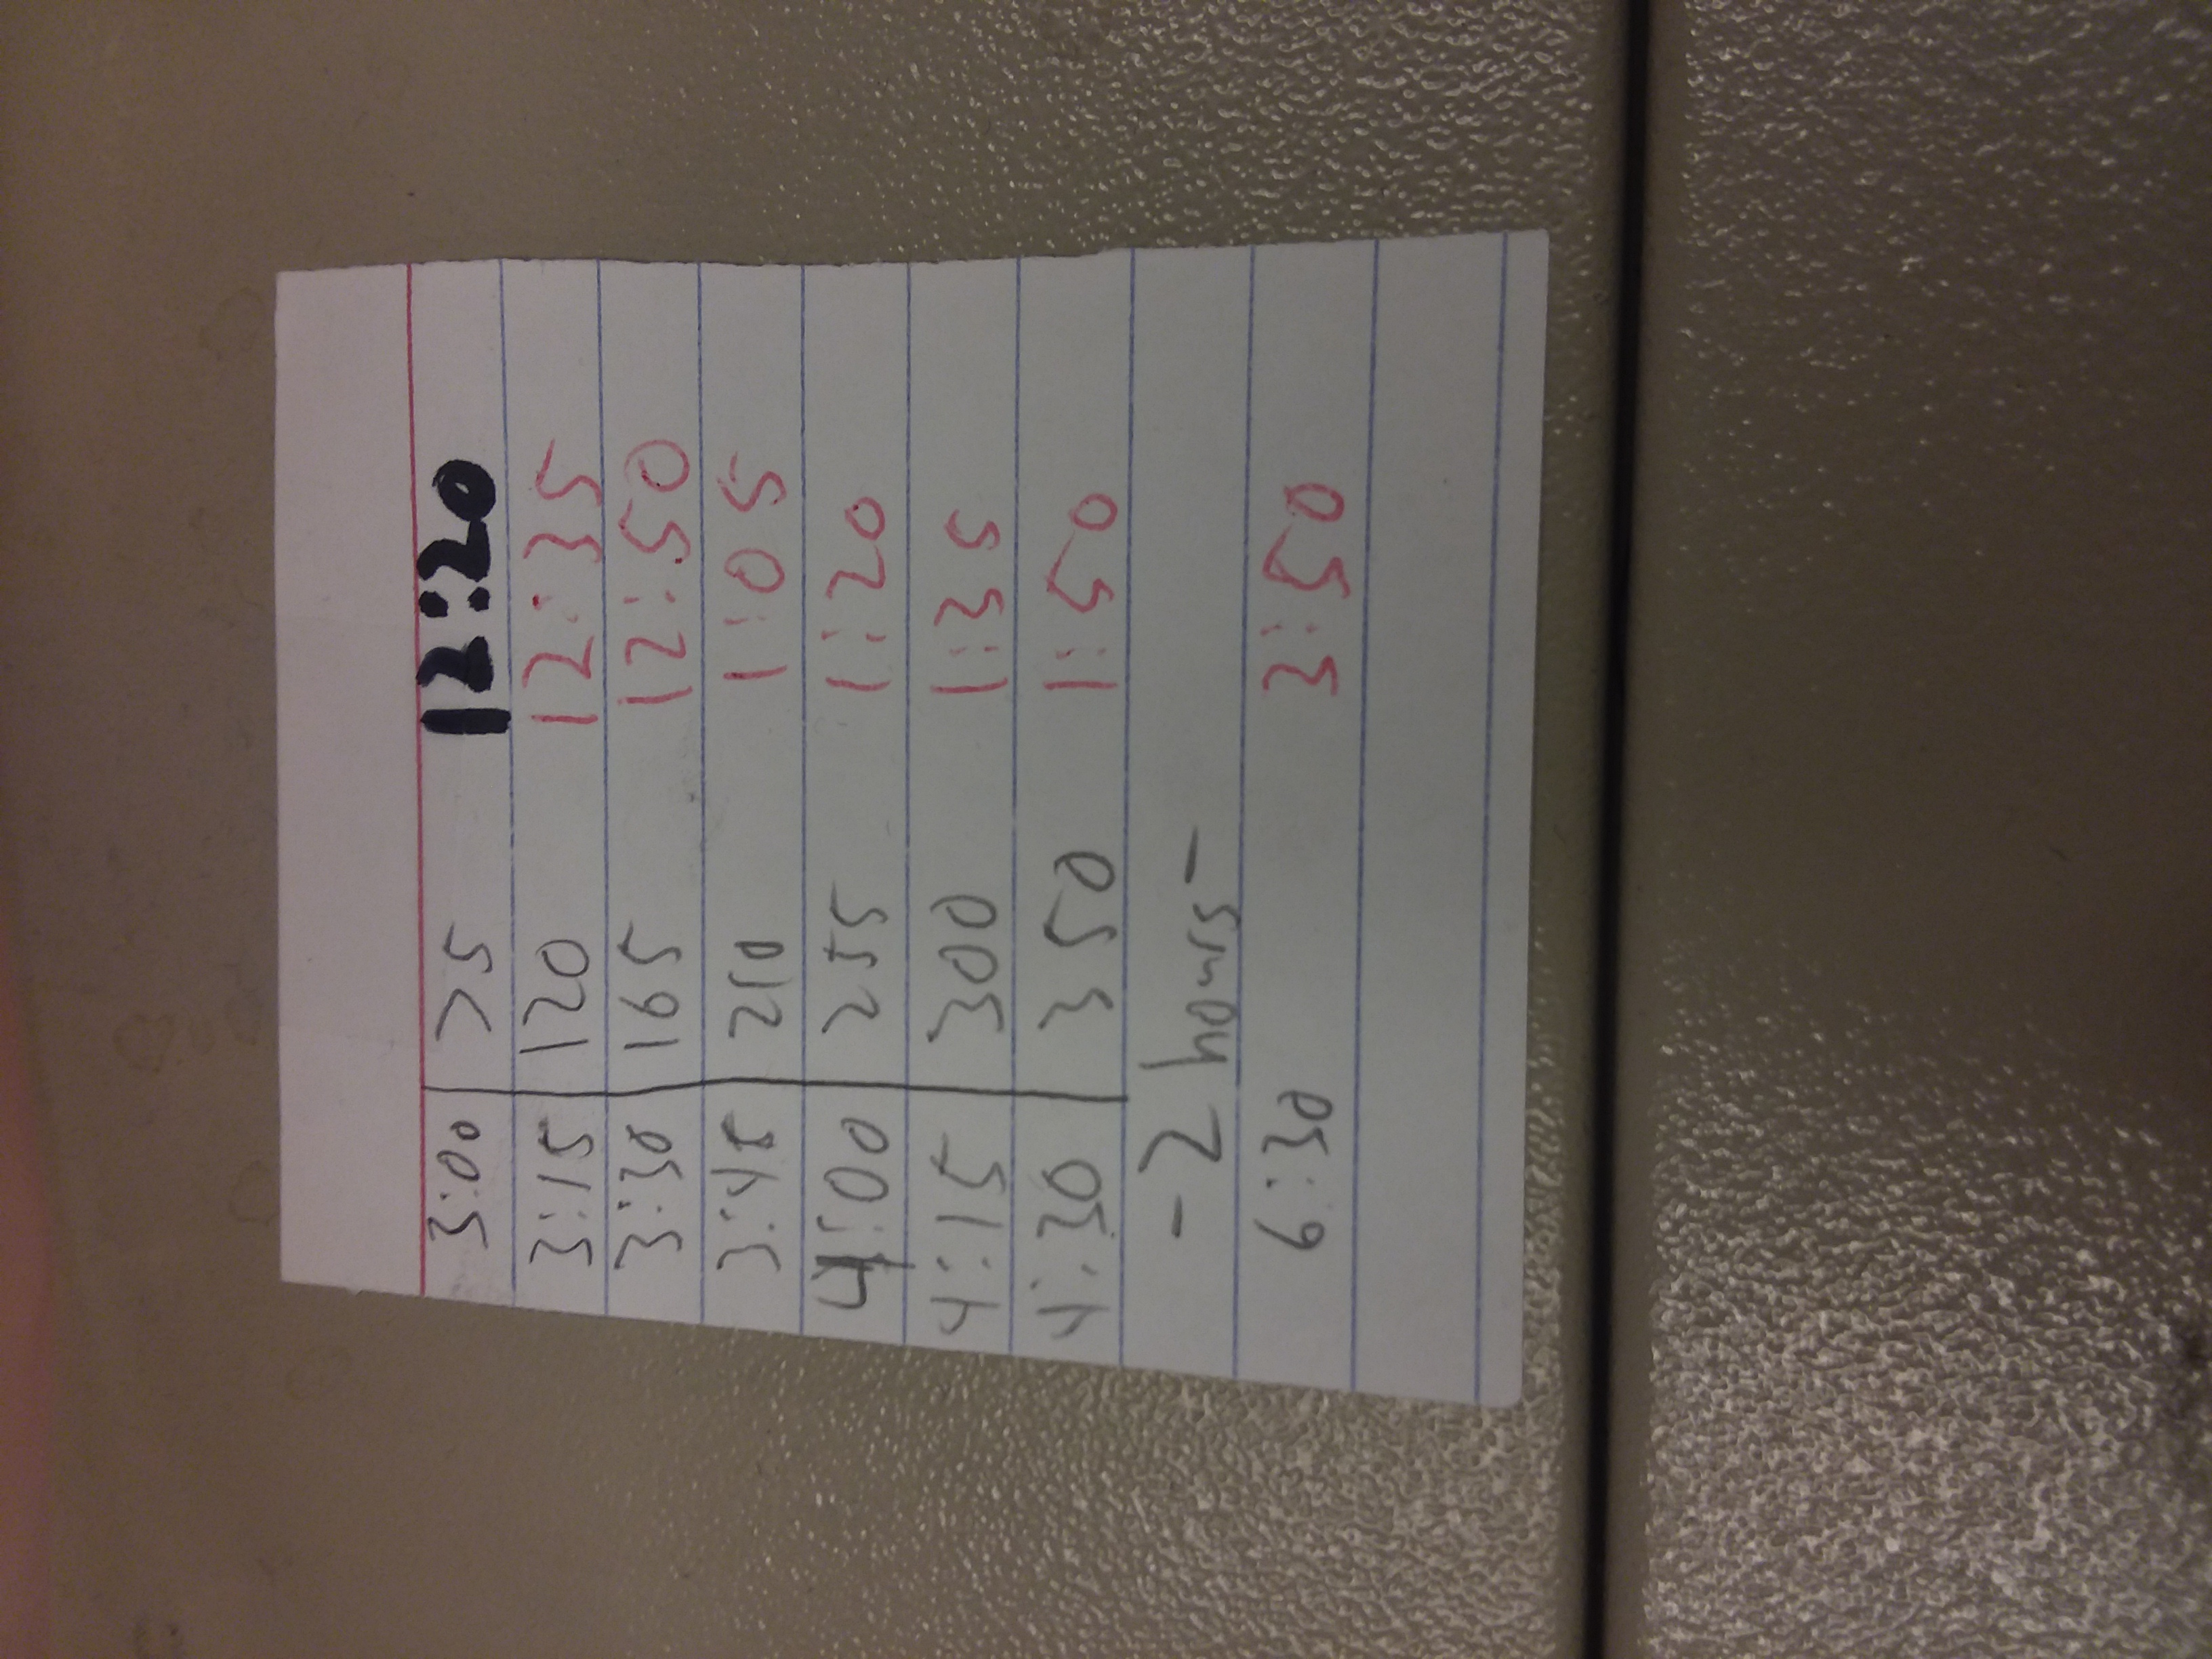 3:00 75 12:20
3:15 120 12:35
3:30 165 12:50
3:45 210 1:05
4:00 255 1:20
4:15 300 1:35
4:30 350 1:50
-2 hours-
6:30 3:50